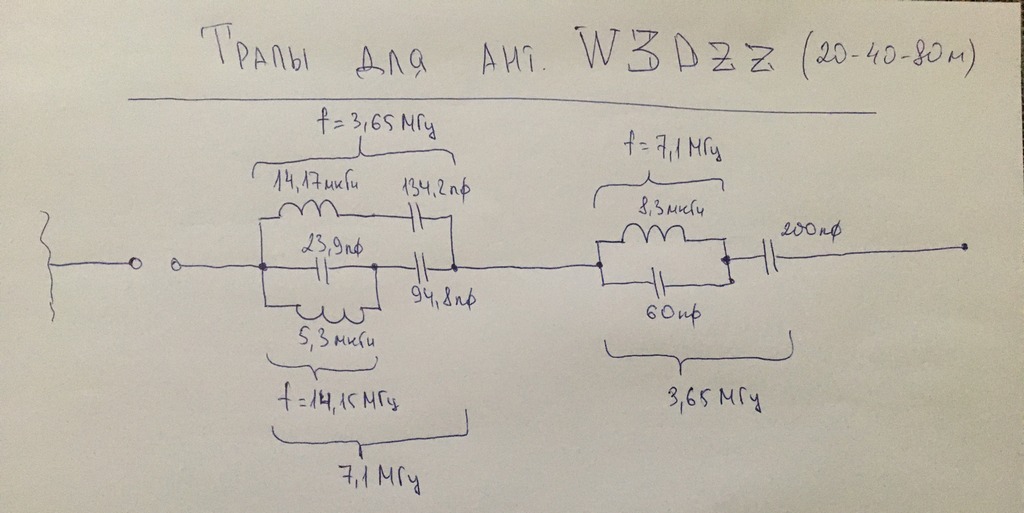 Трапы для ант. W3DZZ (20-40-80м)
f=3,65 МГц
14,17мкГн
134,2пф
23,9пф
94,8пф
5,3мкГн
f=14,15МГц
7,1 МГц
f=7,1 МГц
8,3мкГн
200пф
60пф
3,65 МГц